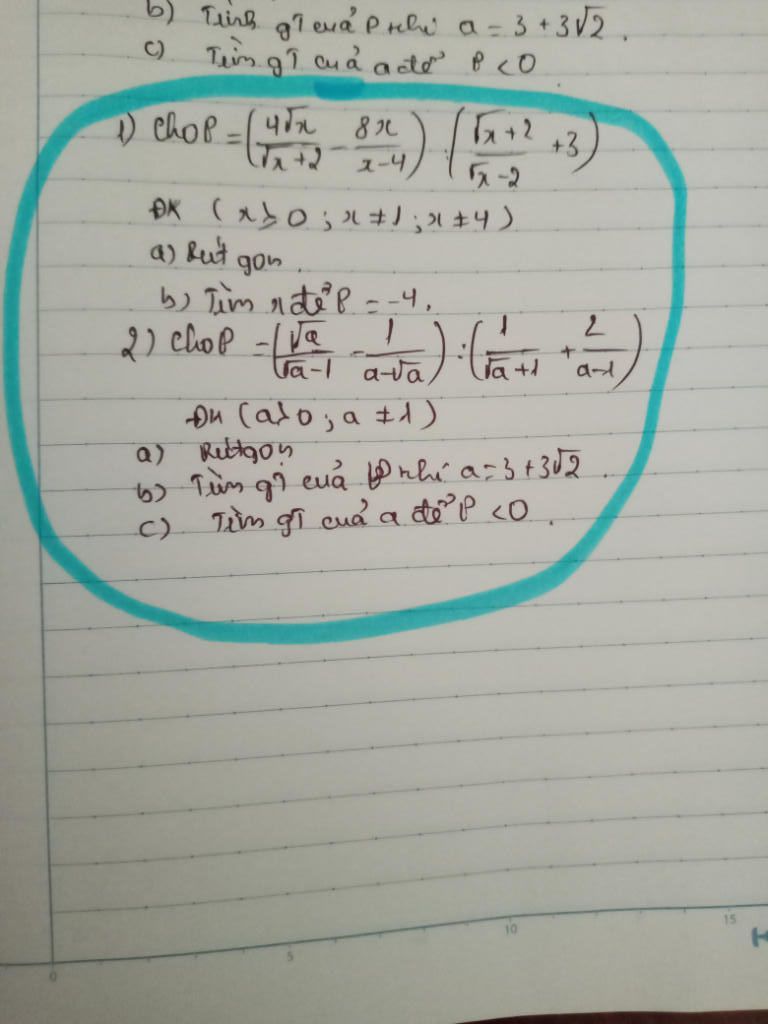 b) Tính gT cuả P khi a = 3 + 3√2.
c) Tìm gT cuả a để P < 0
1) Cho P = (4√x/(√x+2) - 8x/(x-4)) : ((√x+2)/(√x-2) + 3)
ĐK (x ≥ 0 ; x ≠ 1 ; x ≠ 4)
a) Rút gọn.
b) Tìm x để P = -4.
2) Cho P = (√a/(√a-1) - 1/(a-√a)) : (1/(√a+1) + 2/(a-1))
ĐK (a > 0 ; a ≠ 1)
a) Rút gọn
b) Tìm gT cuả P khi a = 3 + 3√2.
c) Tìm gT cuả a để P < 0.
0 5 10 15